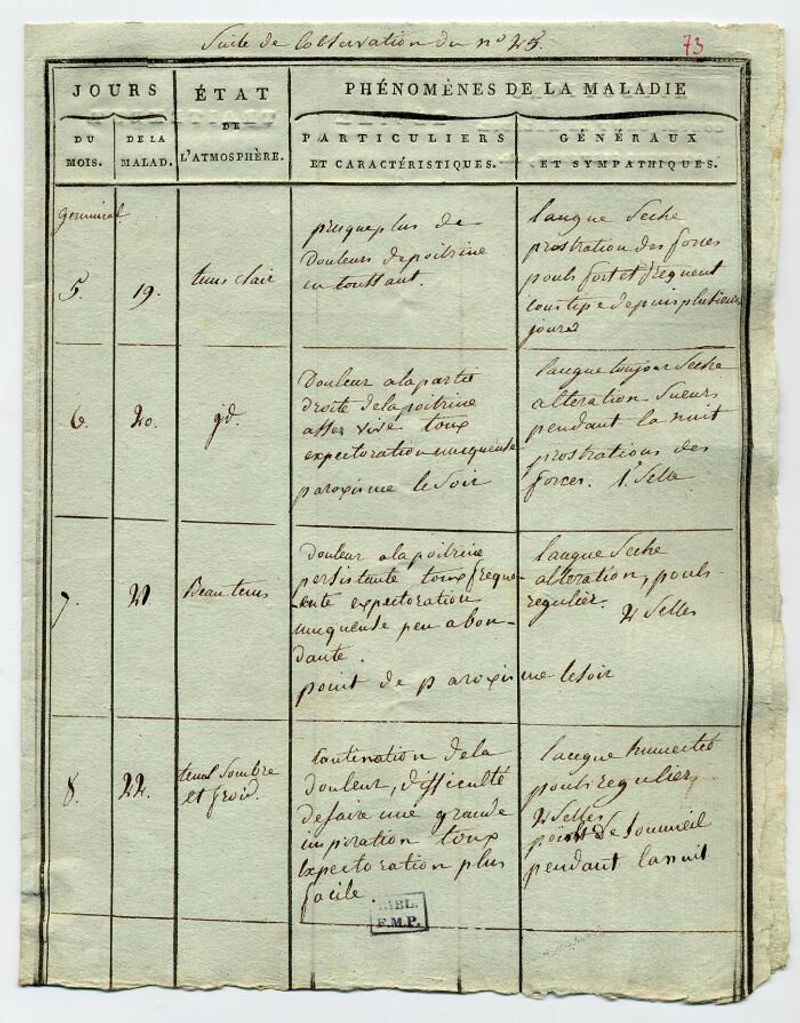 Suite de l'observation du n° 25.
73
JOURS
ÉTAT
PHÉNOMÈNES DE LA MALADIE
DU
MOIS.
DE LA
MALAD.
DE
L'ATMOSPHÈRE.
PARTICULIERS
ET CARACTÉRISTIQUES.
GÉNÉRAUX
ET SYMPATHIQUES.
germinal
5.
19.
tems clair
presque plus de
Douleurs de poitrine
en toussant.
langue Seche
prostration des forces
pouls fort et frequent
constipé depuis plusieurs
jours
6.
20.
id.
Douleur a la partie
droite de la poitrine
assez vive toux
expectoration muqueuse
paroxisme le Soir
langue toujour Seche
alteration Sueurs
pendant la nuit
prostrations des
forces. 1 Selle
7.
21
Beau tems
douleur a la poitrine
persistante toux freque-
-ente expectoration
muqueuse peu abon-
dante.
point de paroxisme le soir
langue Seche
alteration, pouls
regulier.
2 Selles
8.
22.
tems Sombre
et froid.
Contination de la
douleur, difficulté
de faire une grande
inspiration toux
Expectoration plus
facile.
langue humectée
pouls regulier,
2 Selles
point de Sommeil
pendant la nuit
BIBL.
F.M.P.